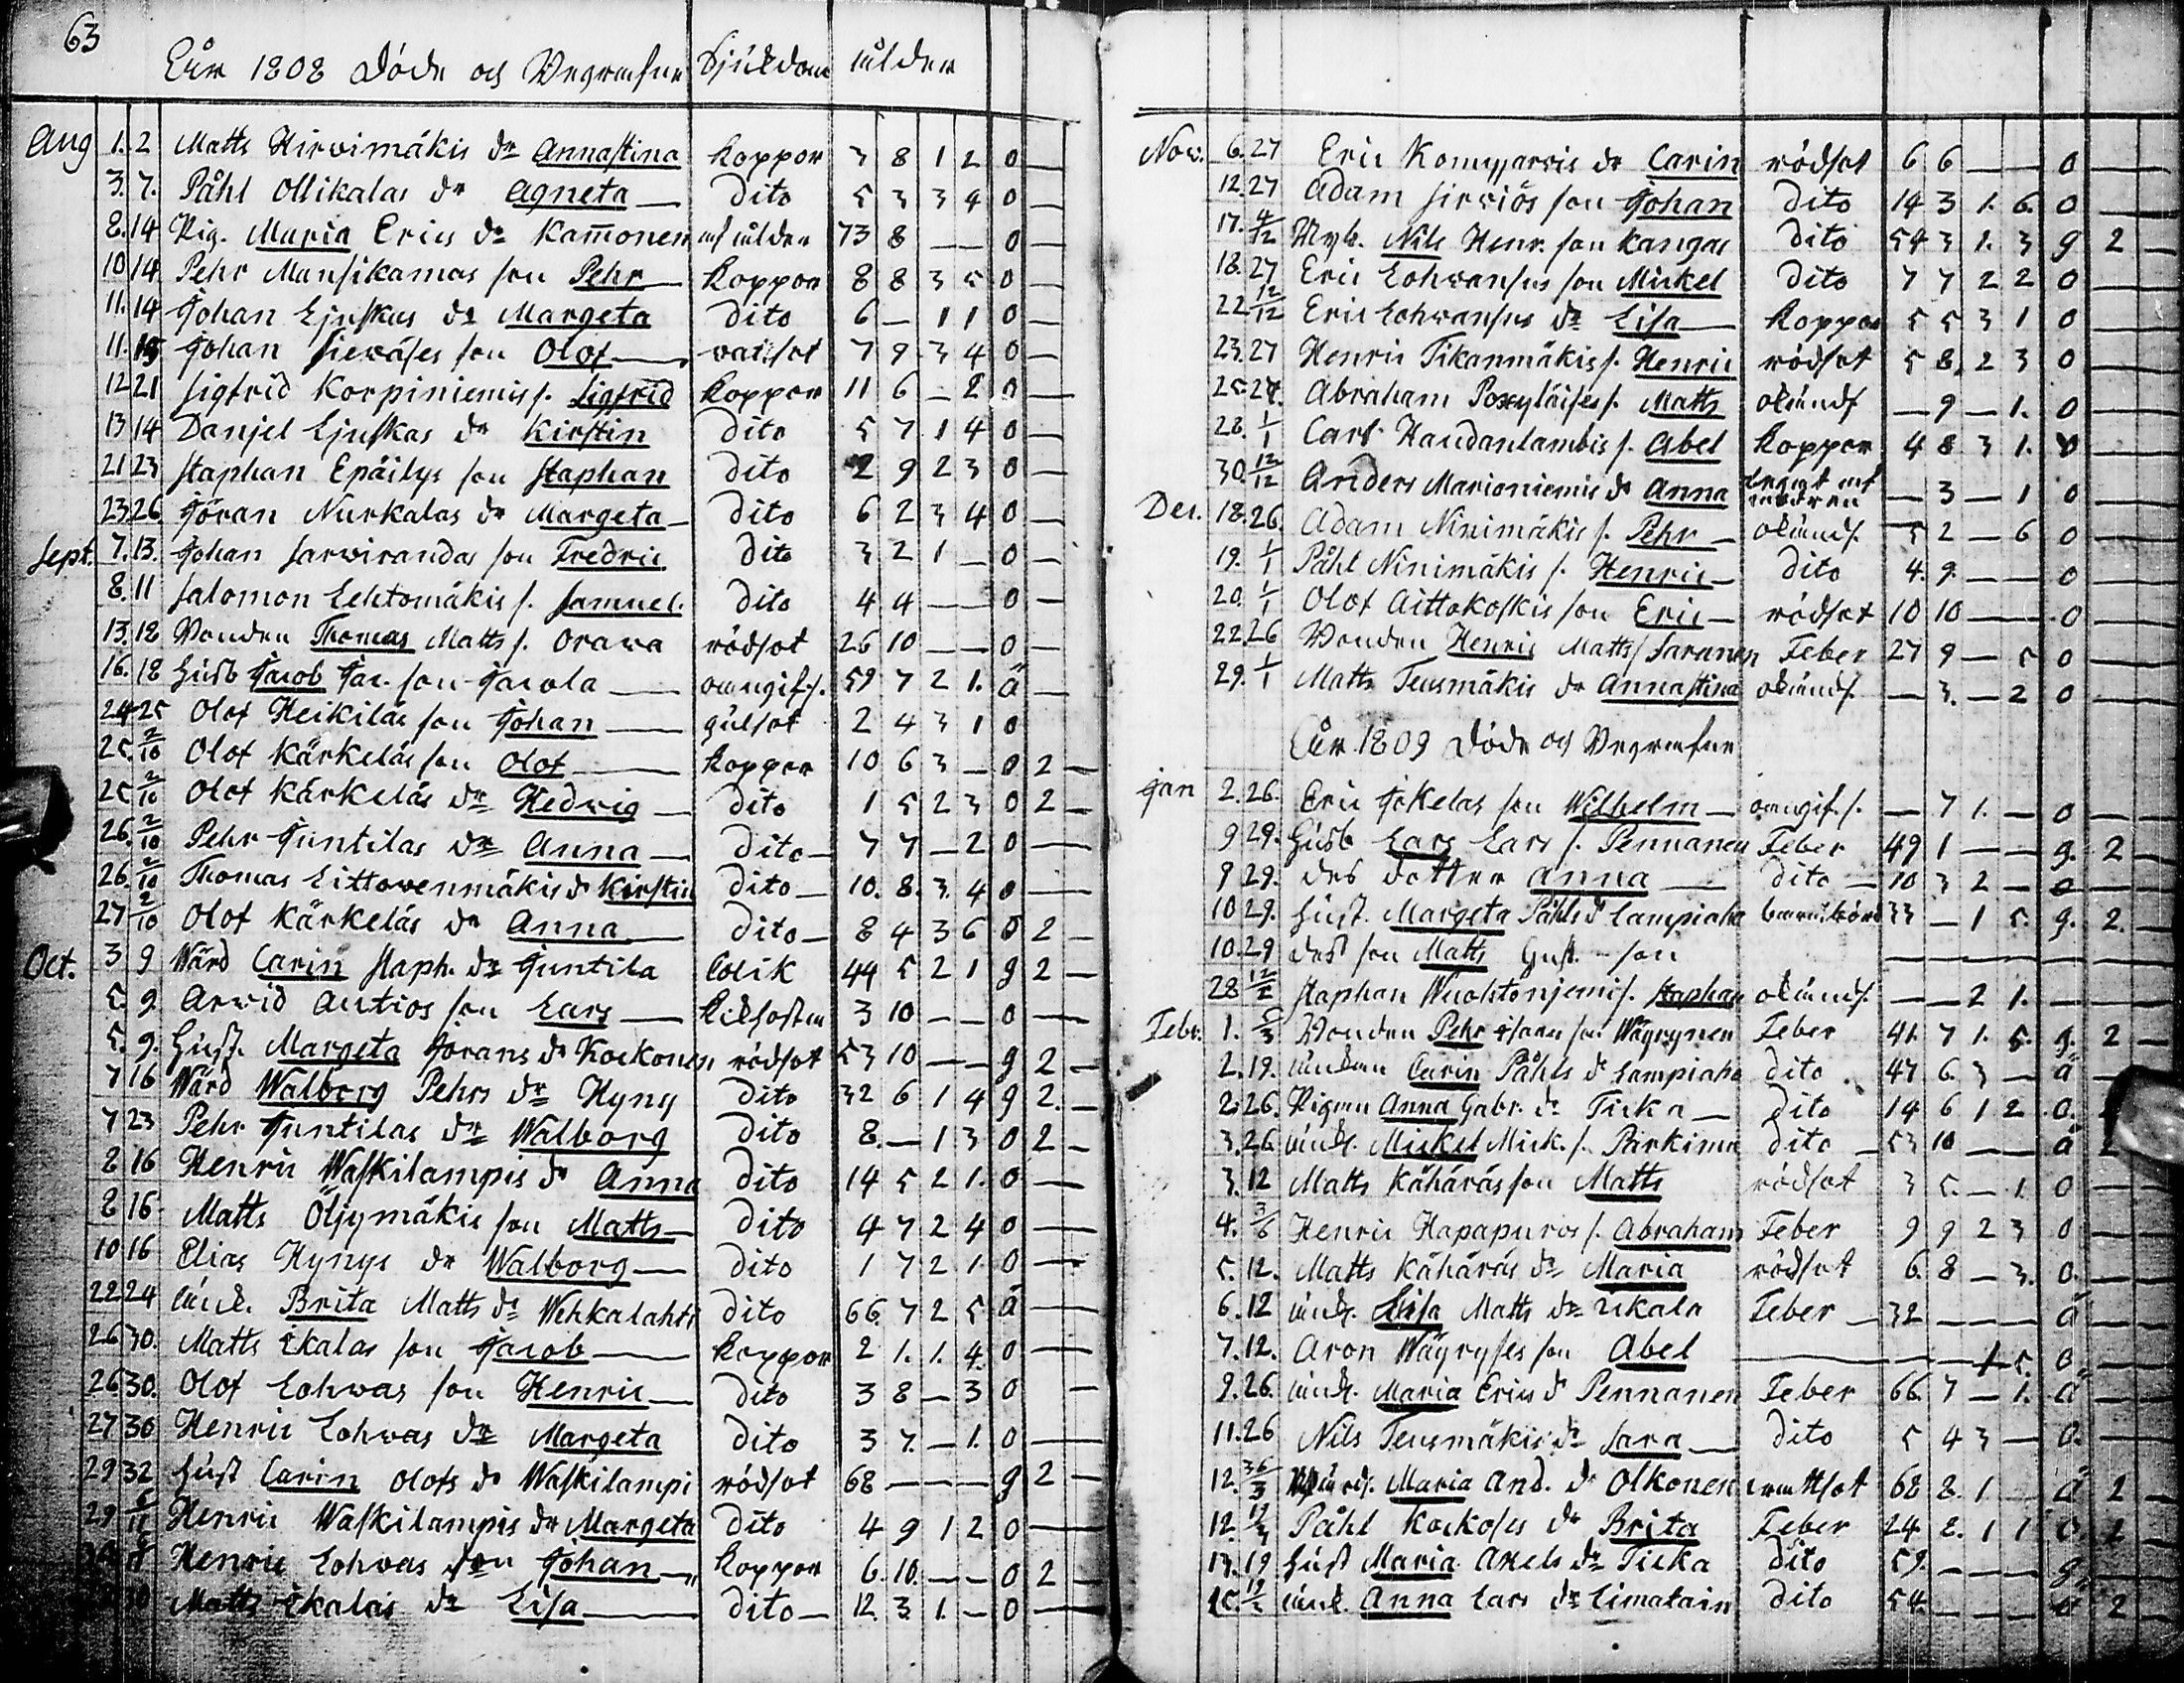 63
År 1808 Döde och Begrafne Sjukdom ålder
Aug 1. 2 Matts Hirvimäkis dr Annastina koppor 3 8 1 2 0 —
3. 7. Påhl Ollikalas dr Agneta — dito 5 3 3 4 0 —
8. 14 Pig. Maria Erics dr Kam̄onen af ålder 73 8 — — 0 —
10 14 Pehr Mansikamas son Pehr — koppor 8 8 3 5 0 —
11. 14 Johan Ljuskas dr Margeta dito 6 — 1 1 0 —
11. 15 Johan Sieväses son Olof — 7 9 3 4 0 —
12 21 Sigfrid Korpiniemis s. Sigfrid koppor 11 6 — 2 0 —
13 14 Danjel Ljuskas dr Kirstin dito 5 7 1 4 0 —
21 23 Staphan Epäilys son Staphan dito 2 9 2 3 0 —
23 26 Jöran Nurkalas dr Margeta — dito 6 2 3 4 0 —
Sept. 7. 13. Johan Sarvirandas son Fredric dito 3 2 1 — 0 —
8. 11 Salomon Lehtomäkis s. Samuel. dito 4 4 — — 0 —
13. 18 Bonden Thomas Matts s. Orava rödsot 26 10 — — 0 —
16. 18 Husb Jacob Jac. son Jacola — oangifs. 59 7 2 1. ä —
24 25 Olof Heikiläs son Johan — gulsot 2 4 3 1 0
25. 2/10 Olof Kärkeläs son Olof — koppor 10 6 3 — 0 2 —
25 2/10 Olof Kärkeläs dr Hedvig — dito 1 5 2 3 0 2 —
26. 2/10 Pehr Juntilas dr Anna — dito — 7 7 — 2 0 —
26. 2/10 Thomas Littowenmäkis dr Kirstin dito — 10. 8. 3. 4 0 —
27 2/10 Olof Kärkeläs dr Anna — dito — 8 4 3 6 0 2 —
Oct. 3 9 Wärd Carin Staph. dr Juntila Colik 44 5 2 1 g 2 —
5. 9. Arvid Autios son Lars — kikhosta 3 10 — — 0 —
5. 9. Hust. Margeta Jörans dr Kockonen rödsot 53 10 — — g 2 —
7 16 Wärd Walborg Pehrs dr Hyny dito 32 6 1 4 g 2. —
7 23 Pehr Juntilas dr Walborg dito 8. — 1 3 0 2 —
8 16 Henric Waskilampis dr Anna dito 14 5 2 1. 0 —
8 16 Matts Öljymäkis son Matts — dito 4 7 2 4 0 —
10 16 Elias Hynys dr Walborg — dito 1 7 2 1. 0 —
22 24 änk. Brita Matts dr Wehkalahti dito 66. 7 2 5 ä —
26 30. Matts Ekalas son Jacob — koppor 2 1. 1. 4. 0 —
26 30. Olof Lohvas son Henric — dito 3 8 — 3 0 —
27 30 Henric Lohvas dr Margeta dito 3 7. — 1. 0 —
29 32 Hust Carin Olofs dr Waskilampi rödsot 68 — — — g 2 —
29 Henric Waskilampis dr Margeta dito 4 9 1 2 0 —
Henric Lohvas son Johan — koppor 6. 10. — — 0 2 —
Matts Ekalas dr Lisa — dito — 12. 3 1. — 0 —
Nov. 6. 27 Eric dr Carin rödsot 6 6 — — 0 —
12. 27 Adam Sirviös son Johan dito 14 3 1. 6. 0 —
17. 4/12 Nils Henr. son Kangas dito 54 3 1. 3 g 2 —
18. 27 Eric Lohvansus son Mickel dito 7 7 2 2 0 —
22 12/12 Eric Lohvansus dr Lisa — koppor 5 5 3 1 0 —
23. 27 Henric Tikanmäkis s. Henric rödsot 5 8 2 3 0 —
25 27. Abraham s. Matts okänds — 9 — 1. 0 —
28. 1/1 Carl Haudanlambis s. Abel koppor 4 8 3 1. 0 —
30. 12/12 Anders Marioniemis dr Anna — 3 — 1 0 —
Dec. 18. 26. Adam Ninimäkis s. Pehr — okänds. 5 2 — 6 0 —
19. 1/1 Påhl Ninimäkis s. Henric — dito 4. 9. — — 0 —
20. 1/1 Olof Aittokoskis son Eric — rödsot 10 10 — — 0 —
22. 26 Bonden Henric Matts s Saranen Feber 27 9 — 5 0 —
29. 1/1 Matts Teusmäkis dr Annastina okänds. — 3. — 2 0 —
År 1809 Döde och Begrafne
Jan 2. 26. Eric Jokelas son Wilhelm — oangifs. — 7 1. — 0 —
9 29. Husb Lars Lars s. Pennanen Feber 49 1 — — g. 2 —
9 29. des dotter Anna — dito — 10 3 2 — 0 —
10 29. Hust. Margeta Påhls dr Lampiaho barnsbörd 33 — 1 5. g. 2. —
10. 29 dess son Matts Gust. son — — — — — —
28 12/2 Staphan Wuoktonjemis s. Staphan okänds. — — 2 1. — —
Febr. 1. 5/3 Bonden Pehr son Wäyrynen Feber 41. 7 1. 5. g. 2 —
2. 19. änkan Carin Påhls dr Lampiaho dito 47 6. 3 — ä —
2. 26. Pigan Anna Gabr. dr Ticka — dito 14 6 1 2 0. —
3. 26. änk. Mickel Mick. s. Pirkima dito — 53 10 — — ä 2
3. 12 Matts Kähäräs son Matts rödsot 3 5. — 1. 0 —
4. 3/6 Henric Hapapuros s. Abraham Feber 9 9 2 3 0 —
5. 12. Matts Kähäräs dr Maria rödsot 6. 8 — 3. 0. —
6. 12 änk. Lisa Matts dr Ukala Feber — 32 — — — ä —
7. 12. Aron Wäyryses son Abel — — — 1 5. 0 —
9. 26. änk. Maria Erics dr Pennanen Feber 66. 7 — 1. ä —
11. 26 Nils Teusmäkis dr Sara — dito 5 4 3 — 0. —
12. Maria And. dr Olkonen 68 8. 1 — ä 2 —
12. Påhl Kockoses dr Brita Feber 24 8. 1 1 0 2 —
13. 19 Hust Maria Axels dr Ticka dito 59. — — — g. —
15. änk. Anna Lars dr Limatain dito 54. — — — 2 —